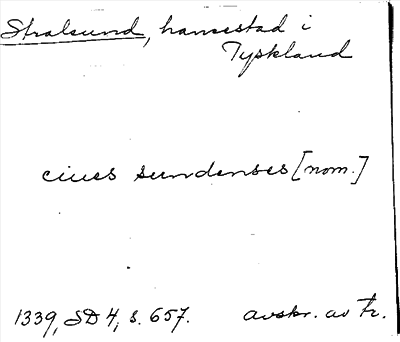 Stralsund, hansestad i
Tyskland
ciues sundenses [nom.]
1339, SD 4, s. 657. avskr. av Fr.